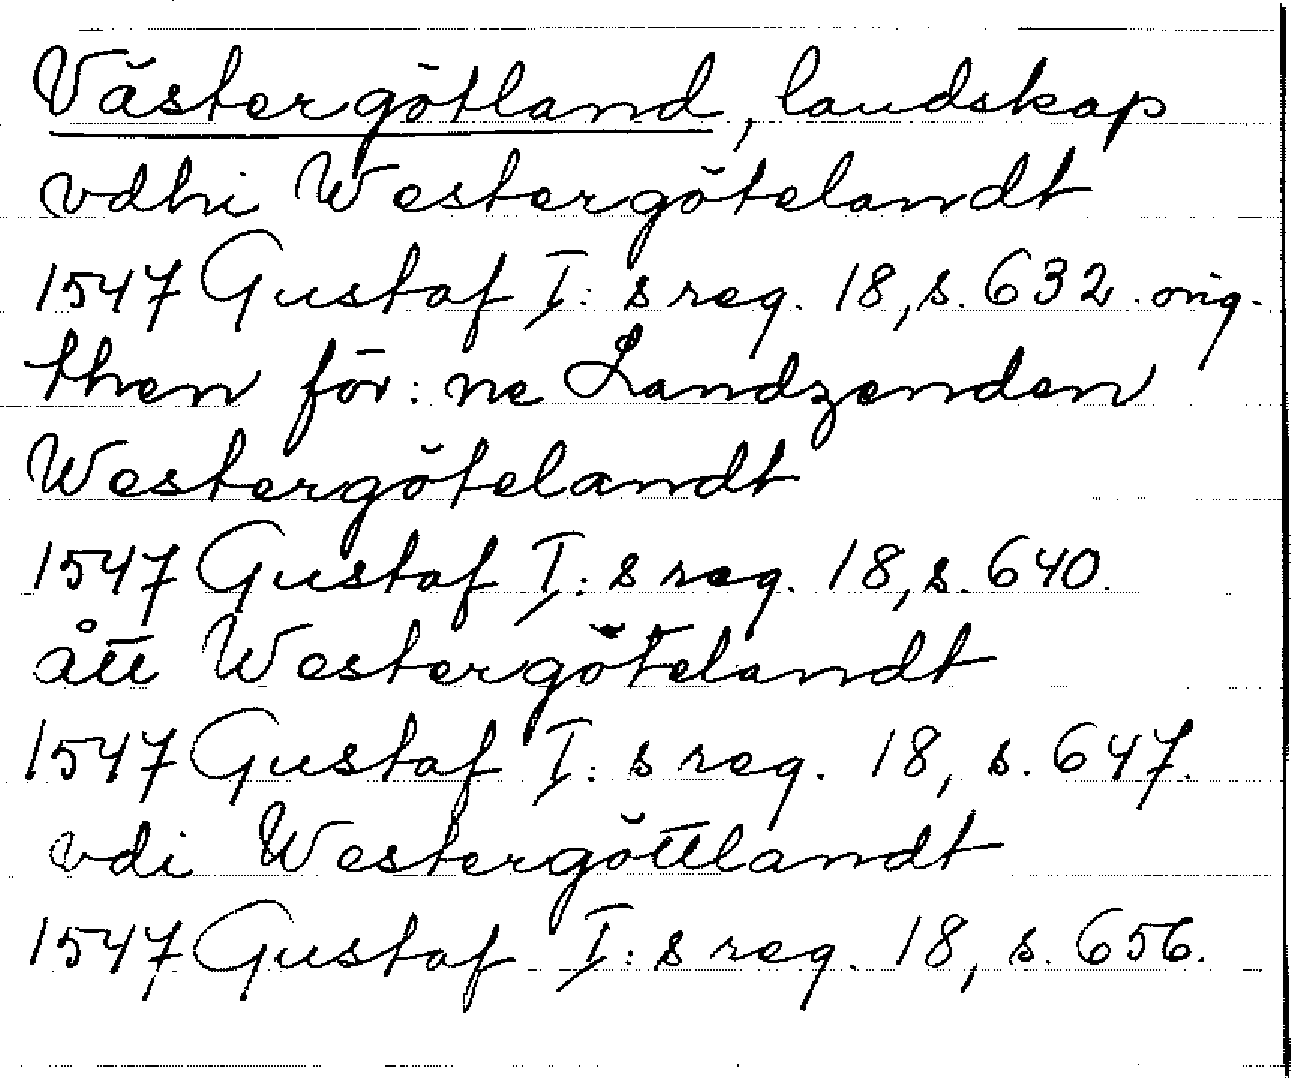 Västergötland, landskap
vdhi Westergötelandt
1547 Gustaf I: s reg. 18, s. 632. orig.
then för: ne Landzenden
Westergötelandt
1547 Gustaf I: s reg. 18, s. 640.
ått Westergötelandt
1547 Gustaf I: s reg. 18, s. 647.
vdi Westergöttlandt
1547 Gustaf I: s reg. 18, s. 656.